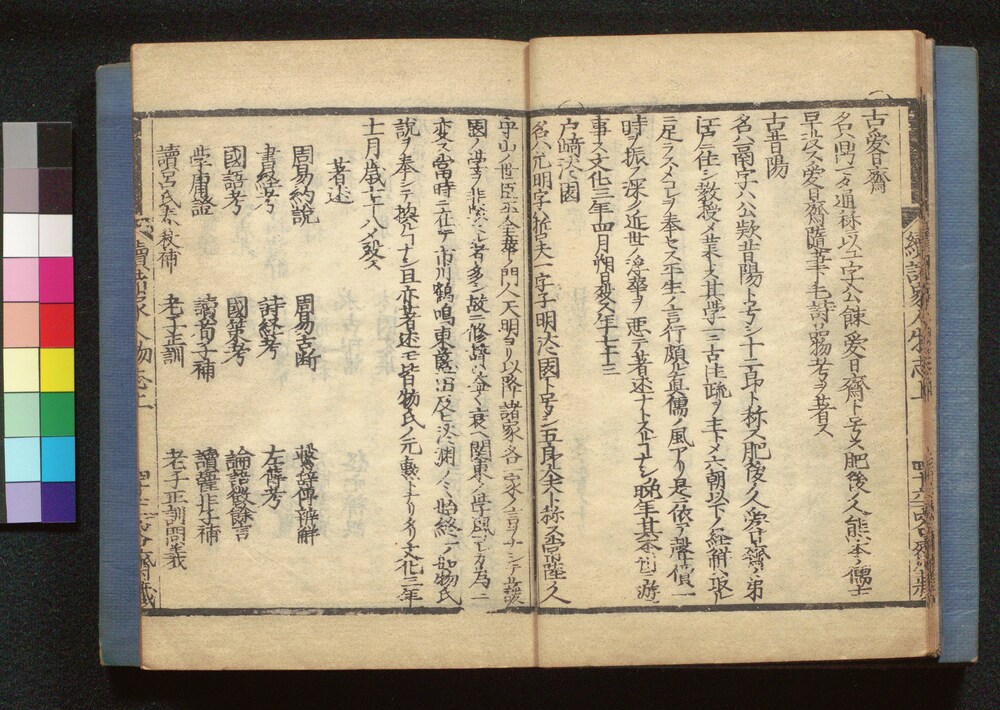 古愛日齋
名ハ鼎一タ通称ヲ以テ字公餗愛日齋ト号ス肥後ノ人熊本ノ儒士
早没ス愛日齋隨筆毛詩品物考ヲ著ス
古昔陽
名ハ鬲字ハ公款昔陽ト号シ十二郎ト称ス肥後ノ人愛日齋ノ弟
江戸ニ住シ教授ヲ業トス其学ハ古注疏ヲ主トメ六朝以下ノ経解ハ取ルニ
足ラストメコレヲ奉セス平生ノ言行頗ル真儒ノ風アリ是ニ依テ聲價一
時ニ振フ深ク近世ノ浮華ヲ悪テ著述ナトスルコナシ晩年其本邑ニ遊
事ス文化三年四月朔日歿ス年七十三
戸崎淡園
名ハ元明字ハ哲夫一字子明淡園ト号シ五郎太夫ト称ス常陸ノ人
守山ノ世臣平金華ノ門人天明ヨリ以降諸家各一家ノ言ヲナシテ護
園ノ学ヲ非譏スル者多シ故ニ修辞益〻衰ヘ関東ノ学風コレカ為ニ
変ス當時ニ在テ市川鶴鳴東藍田及ヒ淡淵ノミ始終一ノ如物氏ノ
説ヲ奉シテ換ルコナシ且亦其著述モ皆物氏ノ元勲トナリタリ文化三年
十一月歳七十八メ歿ス
著述
周易約説　周易古断　繋辞傳辨解
書経考　詩経考　左傳考
國語考　國策考　論語徴餘言
学庸證　讀荀子補　讀韓非子補
讀呂氏春秋補　老子正訓　老子正訓問義
續諸家人物志上
續諸家人物志上